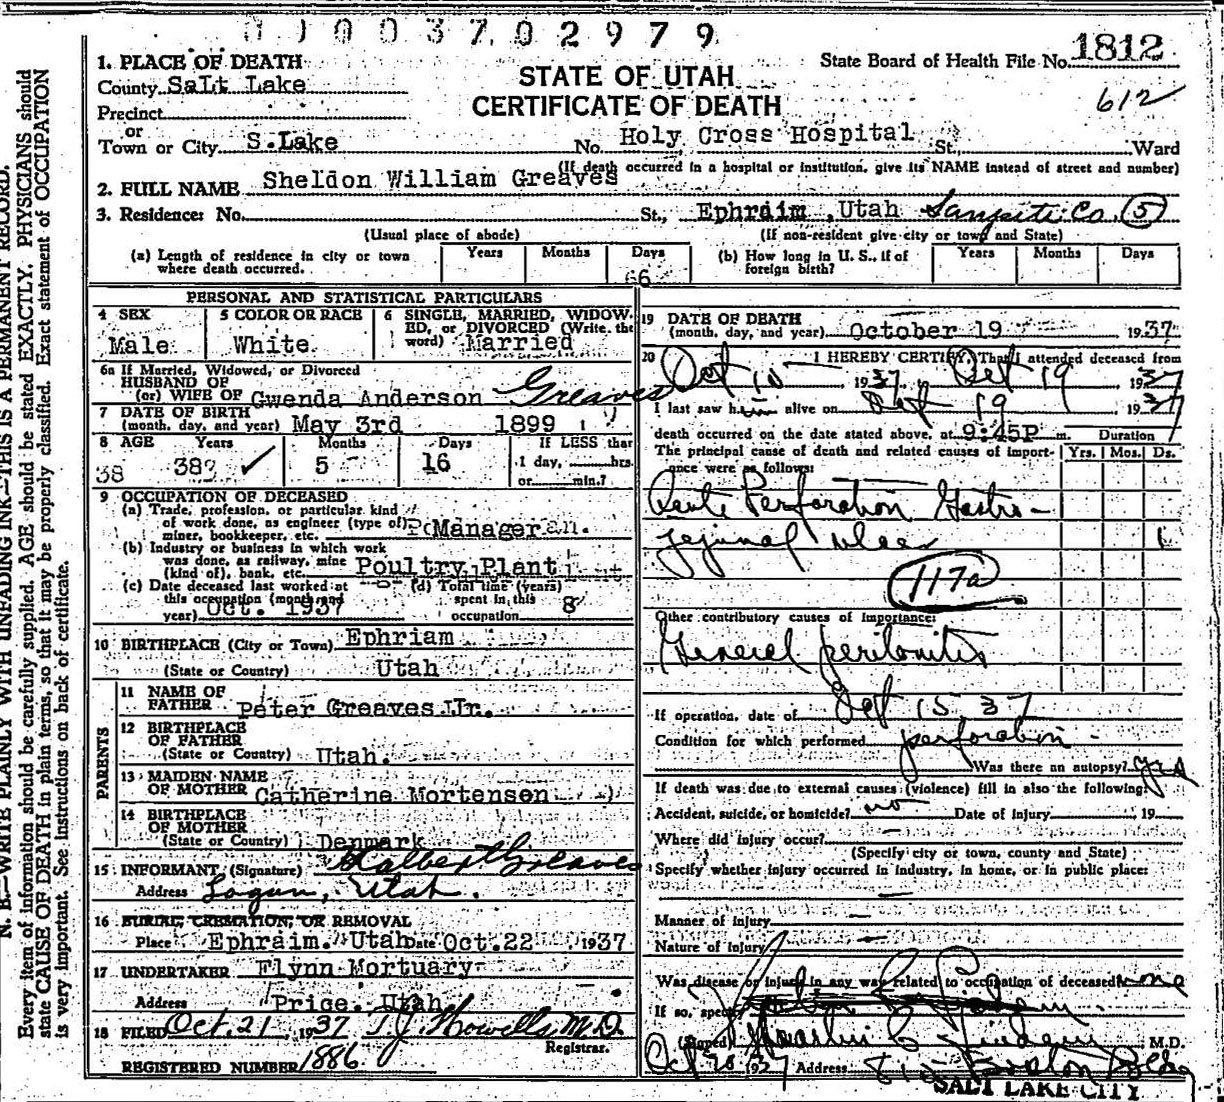 0 0 0 3 7 0 2 9 7 9
1. PLACE OF DEATH
STATE OF UTAH
CERTIFICATE OF DEATH
State Board of Health File No. 1812
612
County Salt Lake
Precinct
or
Town or City S. Lake No. Holy Cross Hospital St. Ward
(If death occurred in a hospital or institution, give its NAME instead of street and number)
2. FULL NAME Sheldon William Greaves
3. Residence: No. St., Ephraim, Utah Sanpete Co. 5
(Usual place of abode) (If non-resident give city or town and State)
(a) Length of residence in city or town where death occurred. Years Months Days 66
(b) How long in U. S., if of foreign birth? Years Months Days
PERSONAL AND STATISTICAL PARTICULARS
4 SEX Male
5 COLOR OR RACE White
6 SINGLE, MARRIED, WIDOWED, or DIVORCED (Write the word) Married
6a If Married, Widowed, or Divorced
HUSBAND OF
(or) WIFE OF Gwenda Anderson Greaves
7 DATE OF BIRTH
(month, day, and year) May 3rd 1899
8 AGE Years Months Days If LESS than
38 38? ✓ 5 16 1 day, hrs.
or min.?
9 OCCUPATION OF DECEASED
(a) Trade, profession, or particular kind
of work done, as engineer (type of)
miner, bookkeeper, etc. Manager
(b) Industry or business in which work
was done, as railway, mine
(kind of), bank, etc. Poultry Plant
(c) Date deceased last worked at
this occupation (month and
year) Oct. 1937
(d) Total time (years)
spent in this
occupation 8
10 BIRTHPLACE (City or Town) Ephriam
(State or Country) Utah
PARENTS
11 NAME OF
FATHER Peter Greaves Jr.
12 BIRTHPLACE
OF FATHER
(State or Country) Utah.
13 MAIDEN NAME
OF MOTHER Catherine Mortensen
14 BIRTHPLACE
OF MOTHER
(State or Country) Denmark
15 INFORMANT (Signature) Halbert Greaves
Address Logan, Utah.
16 BURIAL, CREMATION, OR REMOVAL
Place Ephraim. Utah Date Oct. 22 1937
17 UNDERTAKER Flynn Mortuary
Address Price. Utah
18 FILED Oct. 21, 1937 T J Howells, M.D.
Registrar.
REGISTERED NUMBER 1886
19 DATE OF DEATH
(month, day, and year) October 19 1937
20 I HEREBY CERTIFY, That I attended deceased from
Oct 15 1937 Oct 19 1937
I last saw him alive on Oct 19 1937
death occurred on the date stated above, at 9:45P m. Duration
The principal cause of death and related causes of importance were as follows: Yrs. Mos. Ds.
Acute Perforation Gastro-
jejunal ulcer 1
117a
Other contributory causes of importance:
General peritonitis
If operation, date of Oct 15 37
Condition for which performed perforation -
Was there an autopsy? yes
If death was due to external causes (violence) fill in also the following:
Accident, suicide, or homicide? no Date of Injury 19
Where did injury occur?
(Specify city or town, county and State)
Specify whether injury occurred in industry, in home, or in public place:
Manner of injury
Nature of injury
Was disease or injury in any way related to occupation of deceased none
If so, specify
(Signed) Martin C Lindem M.D.
Oct 20 1937 Address Boston Bldg
SALT LAKE CITY
N. B.—WRITE PLAINLY WITH UNFADING INK—THIS IS A PERMANENT RECORD.
Every item of information should be carefully supplied. AGE should be stated EXACTLY. PHYSICIANS should
state CAUSE OF DEATH in plain terms, so that it may be properly classified. Exact statement of OCCUPATION
is very important. See instructions on back of certificate.